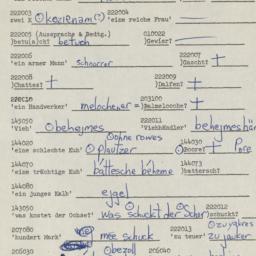 222003 222004
zwei X Okozienam(?) 'eine reiche Frau'
222005 (Aussprache & Bedtg.) 010022
)betu(a)ch( betuch )Gevier?
222006 222007
'ein armer Mann' schnorrer )Dascht? +
222008 222009
)Chattes? + )Dalfen? +
222010 203100
'ein Handwerker' melochener = )Balmeloche? +
145050 222011
'Vieh' Obehejmes 'Viehhändler' behejmeshän
144020 Ohne rowes 144030
'eine schlechte Kuh' O plautzer )Poore? + Pore
144070 144073
'eine trächtige Kuh' battesche beheme )battersch?
144080
'ein junges Kalb' egel
143050 222012
'was kostet der Ochse?' was schuckt der Schor )schuckt?
207080 222013
'hundert Mark' mee schuck 'zu teuer' zu jauker
206030